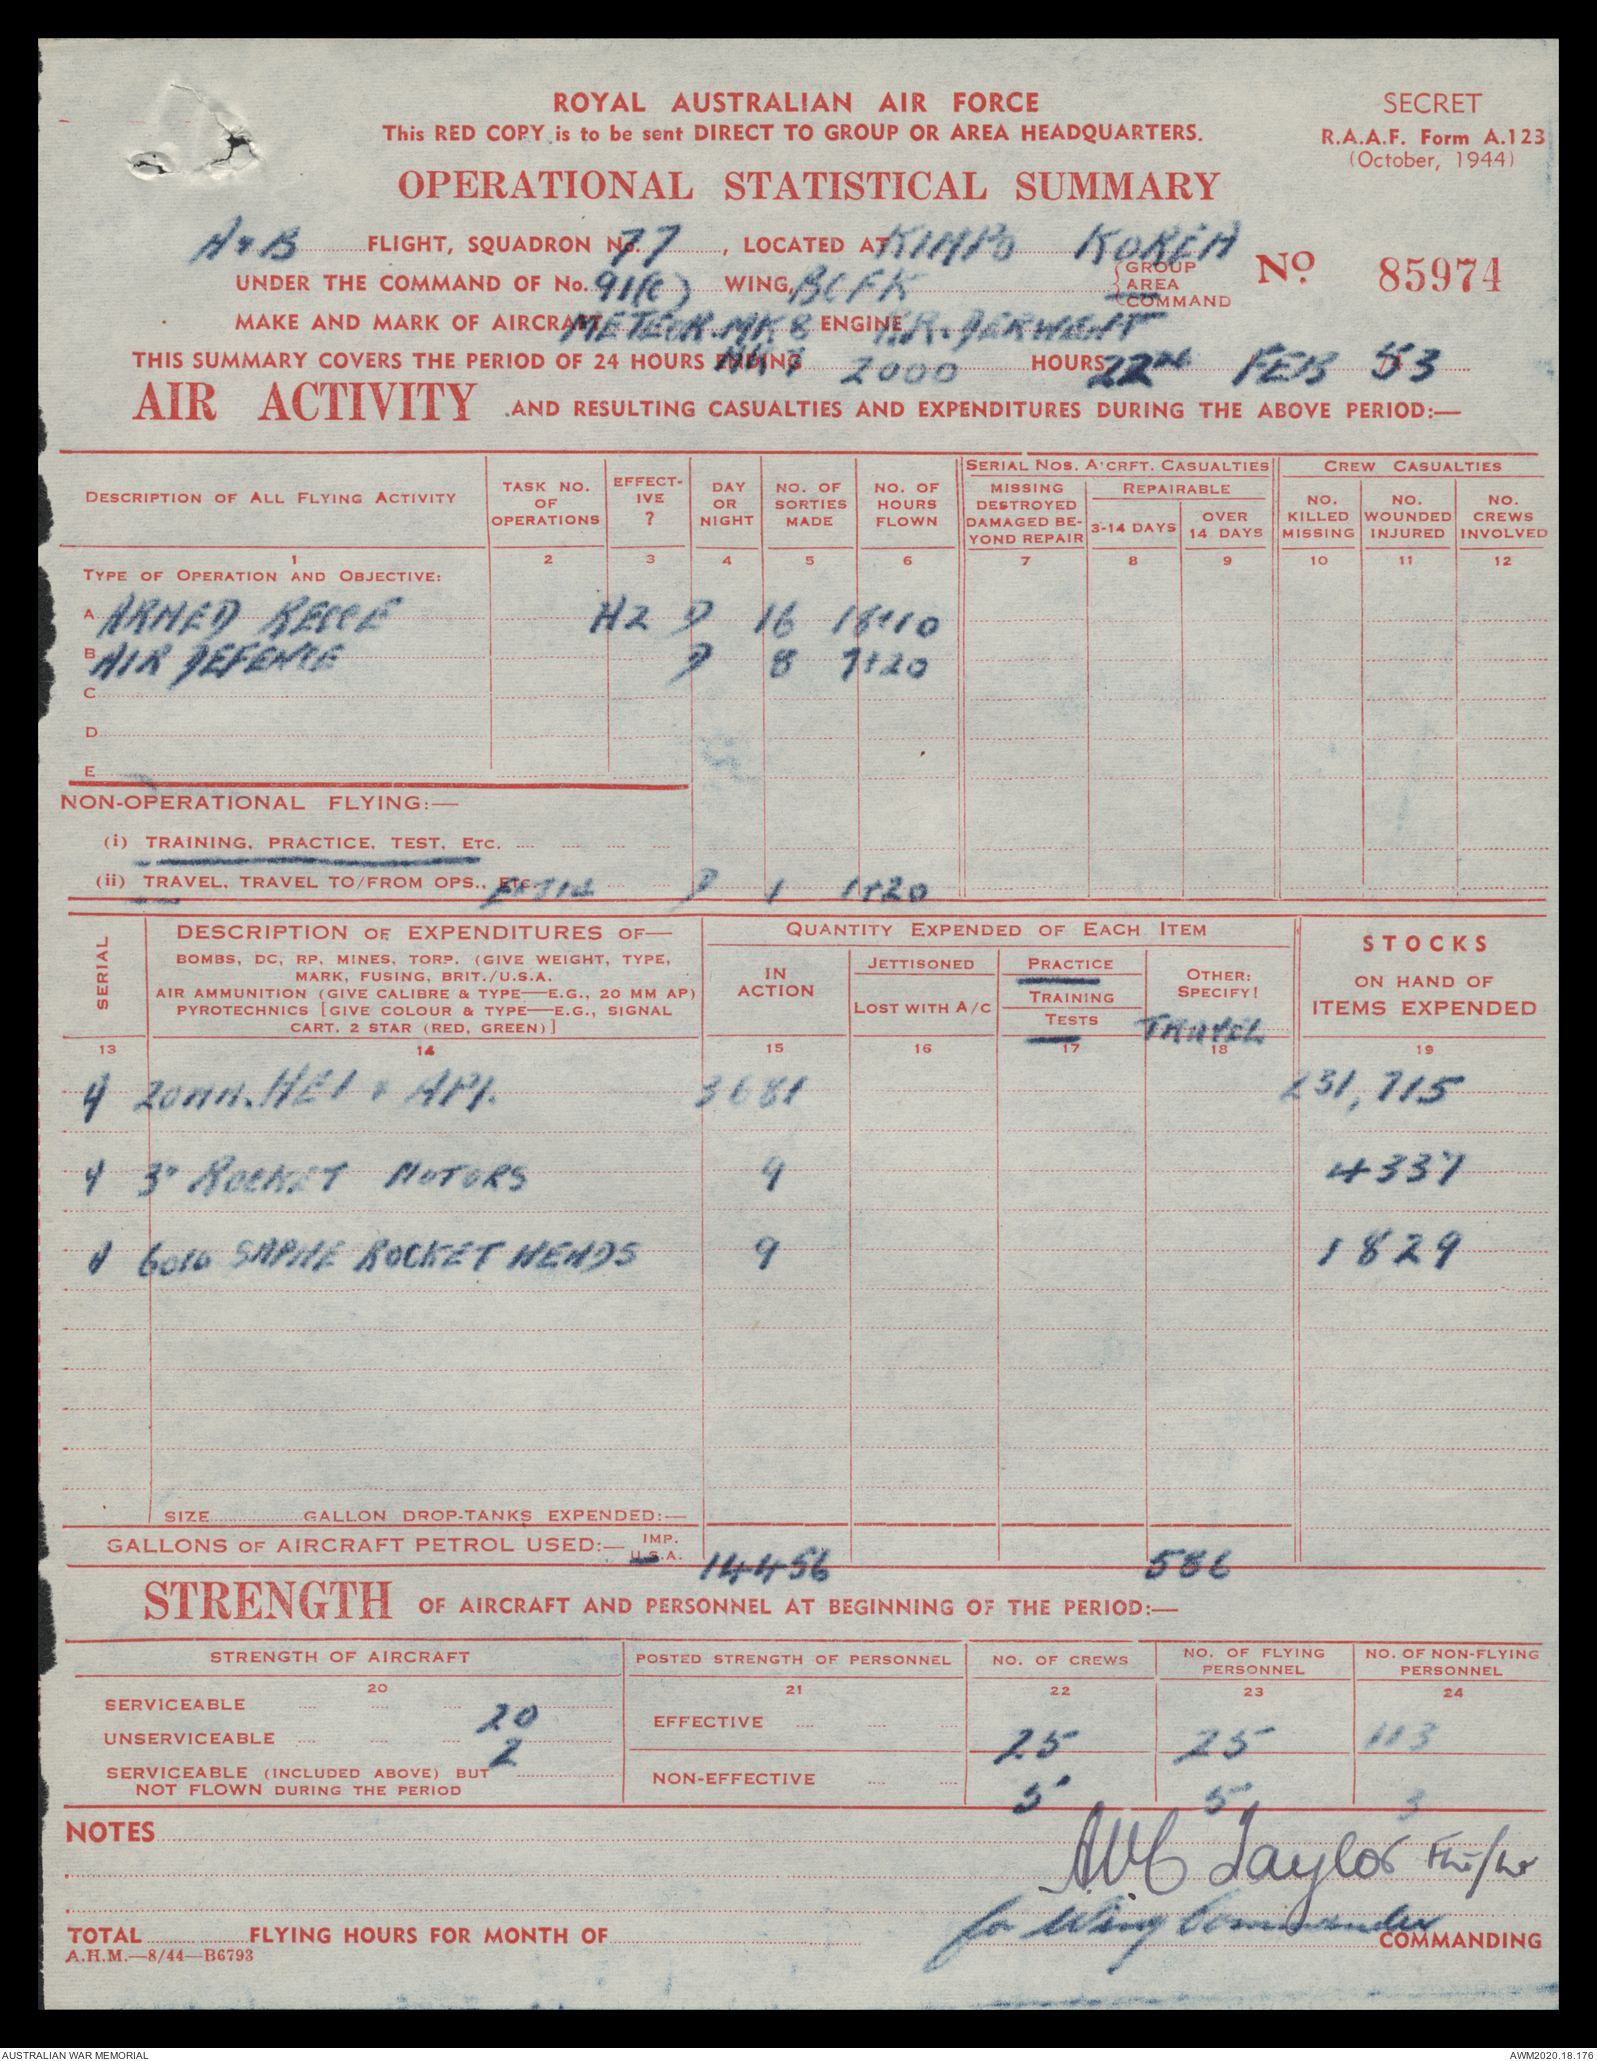 ROYAL AUSTRALIAN AIR FORCE
SECRET
This RED COPY is to be sent DIRECT TO GROUP OR AREA HEADQUARTERS.
R.A.A.F. Form A.123
(October, 1944)
OPERATIONAL STATISTICAL SUMMARY
A & B FLIGHT, SQUADRON No. 77, LOCATED AT KIMPO KOREA
No 85974
UNDER THE COMMAND OF No. 91(C) WING, BCFK {GROUP AREA COMMAND
MAKE AND MARK OF AIRCRAFT METEOR.MK 8 ENGINE R.R. DERWENT
THIS SUMMARY COVERS THE PERIOD OF 24 HOURS ENDING 2000 HOURS 22ND FEB 53
AIR ACTIVITY AND RESULTING CASUALTIES AND EXPENDITURES DURING THE ABOVE PERIOD:—
DESCRIPTION OF ALL FLYING ACTIVITY
TASK NO. OF OPERATIONS
EFFECTIVE ?
DAY OR NIGHT
NO. OF SORTIES MADE
NO. OF HOURS FLOWN
SERIAL NOS. A'CRFT. CASUALTIES
MISSING DESTROYED DAMAGED BEYOND REPAIR
REPAIRABLE
3-14 DAYS
OVER 14 DAYS
CREW CASUALTIES
NO. KILLED MISSING
NO. WOUNDED INJURED
NO. CREWS INVOLVED
1 2 3 4 5 6 7 8 9 10 11 12
TYPE OF OPERATION AND OBJECTIVE:
A ARMED RECCE H2 D 16 16+10
B AIR DEFENCE D 8 7+20
C
D
E
NON-OPERATIONAL FLYING:—
(i) TRAINING, PRACTICE, TEST, ETC.
(ii) TRAVEL, TRAVEL TO/FROM OPS., ETC. D 1 1+20
SERIAL
DESCRIPTION OF EXPENDITURES OF—
BOMBS, DC, RP, MINES, TORP. (GIVE WEIGHT, TYPE,
MARK, FUSING, BRIT./U.S.A.
AIR AMMUNITION (GIVE CALIBRE & TYPE—E.G., 20 MM AP)
PYROTECHNICS [GIVE COLOUR & TYPE—E.G., SIGNAL
CART. 2 STAR (RED, GREEN)]
QUANTITY EXPENDED OF EACH ITEM
IN ACTION
JETTISONED
LOST WITH A/C
PRACTICE
TRAINING
TESTS
OTHER: SPECIFY!
TRAVEL
STOCKS
ON HAND OF
ITEMS EXPENDED
13 14 15 16 17 18 19
A 20MM. HEI & API. 3681 231,715
A 3" ROCKET MOTORS 9 4337
A 60lb SAPHE ROCKET HEADS 9 1829
SIZE GALLON DROP-TANKS EXPENDED:—
GALLONS OF AIRCRAFT PETROL USED:— IMP. U.S.A. 14456 586
STRENGTH OF AIRCRAFT AND PERSONNEL AT BEGINNING OF THE PERIOD:—
STRENGTH OF AIRCRAFT
POSTED STRENGTH OF PERSONNEL
NO. OF CREWS
NO. OF FLYING PERSONNEL
NO. OF NON-FLYING PERSONNEL
20 21 22 23 24
SERVICEABLE 20
EFFECTIVE 25 25 113
UNSERVICEABLE 2
SERVICEABLE (INCLUDED ABOVE) BUT
NOT FLOWN DURING THE PERIOD
NON-EFFECTIVE 5 5 3
NOTES
AWB Taylor Flt/Lt
for Wing Commander
TOTAL FLYING HOURS FOR MONTH OF
COMMANDING
A.H.M.—8/44—B6793
AUSTRALIAN WAR MEMORIAL
AWM2020.18.176